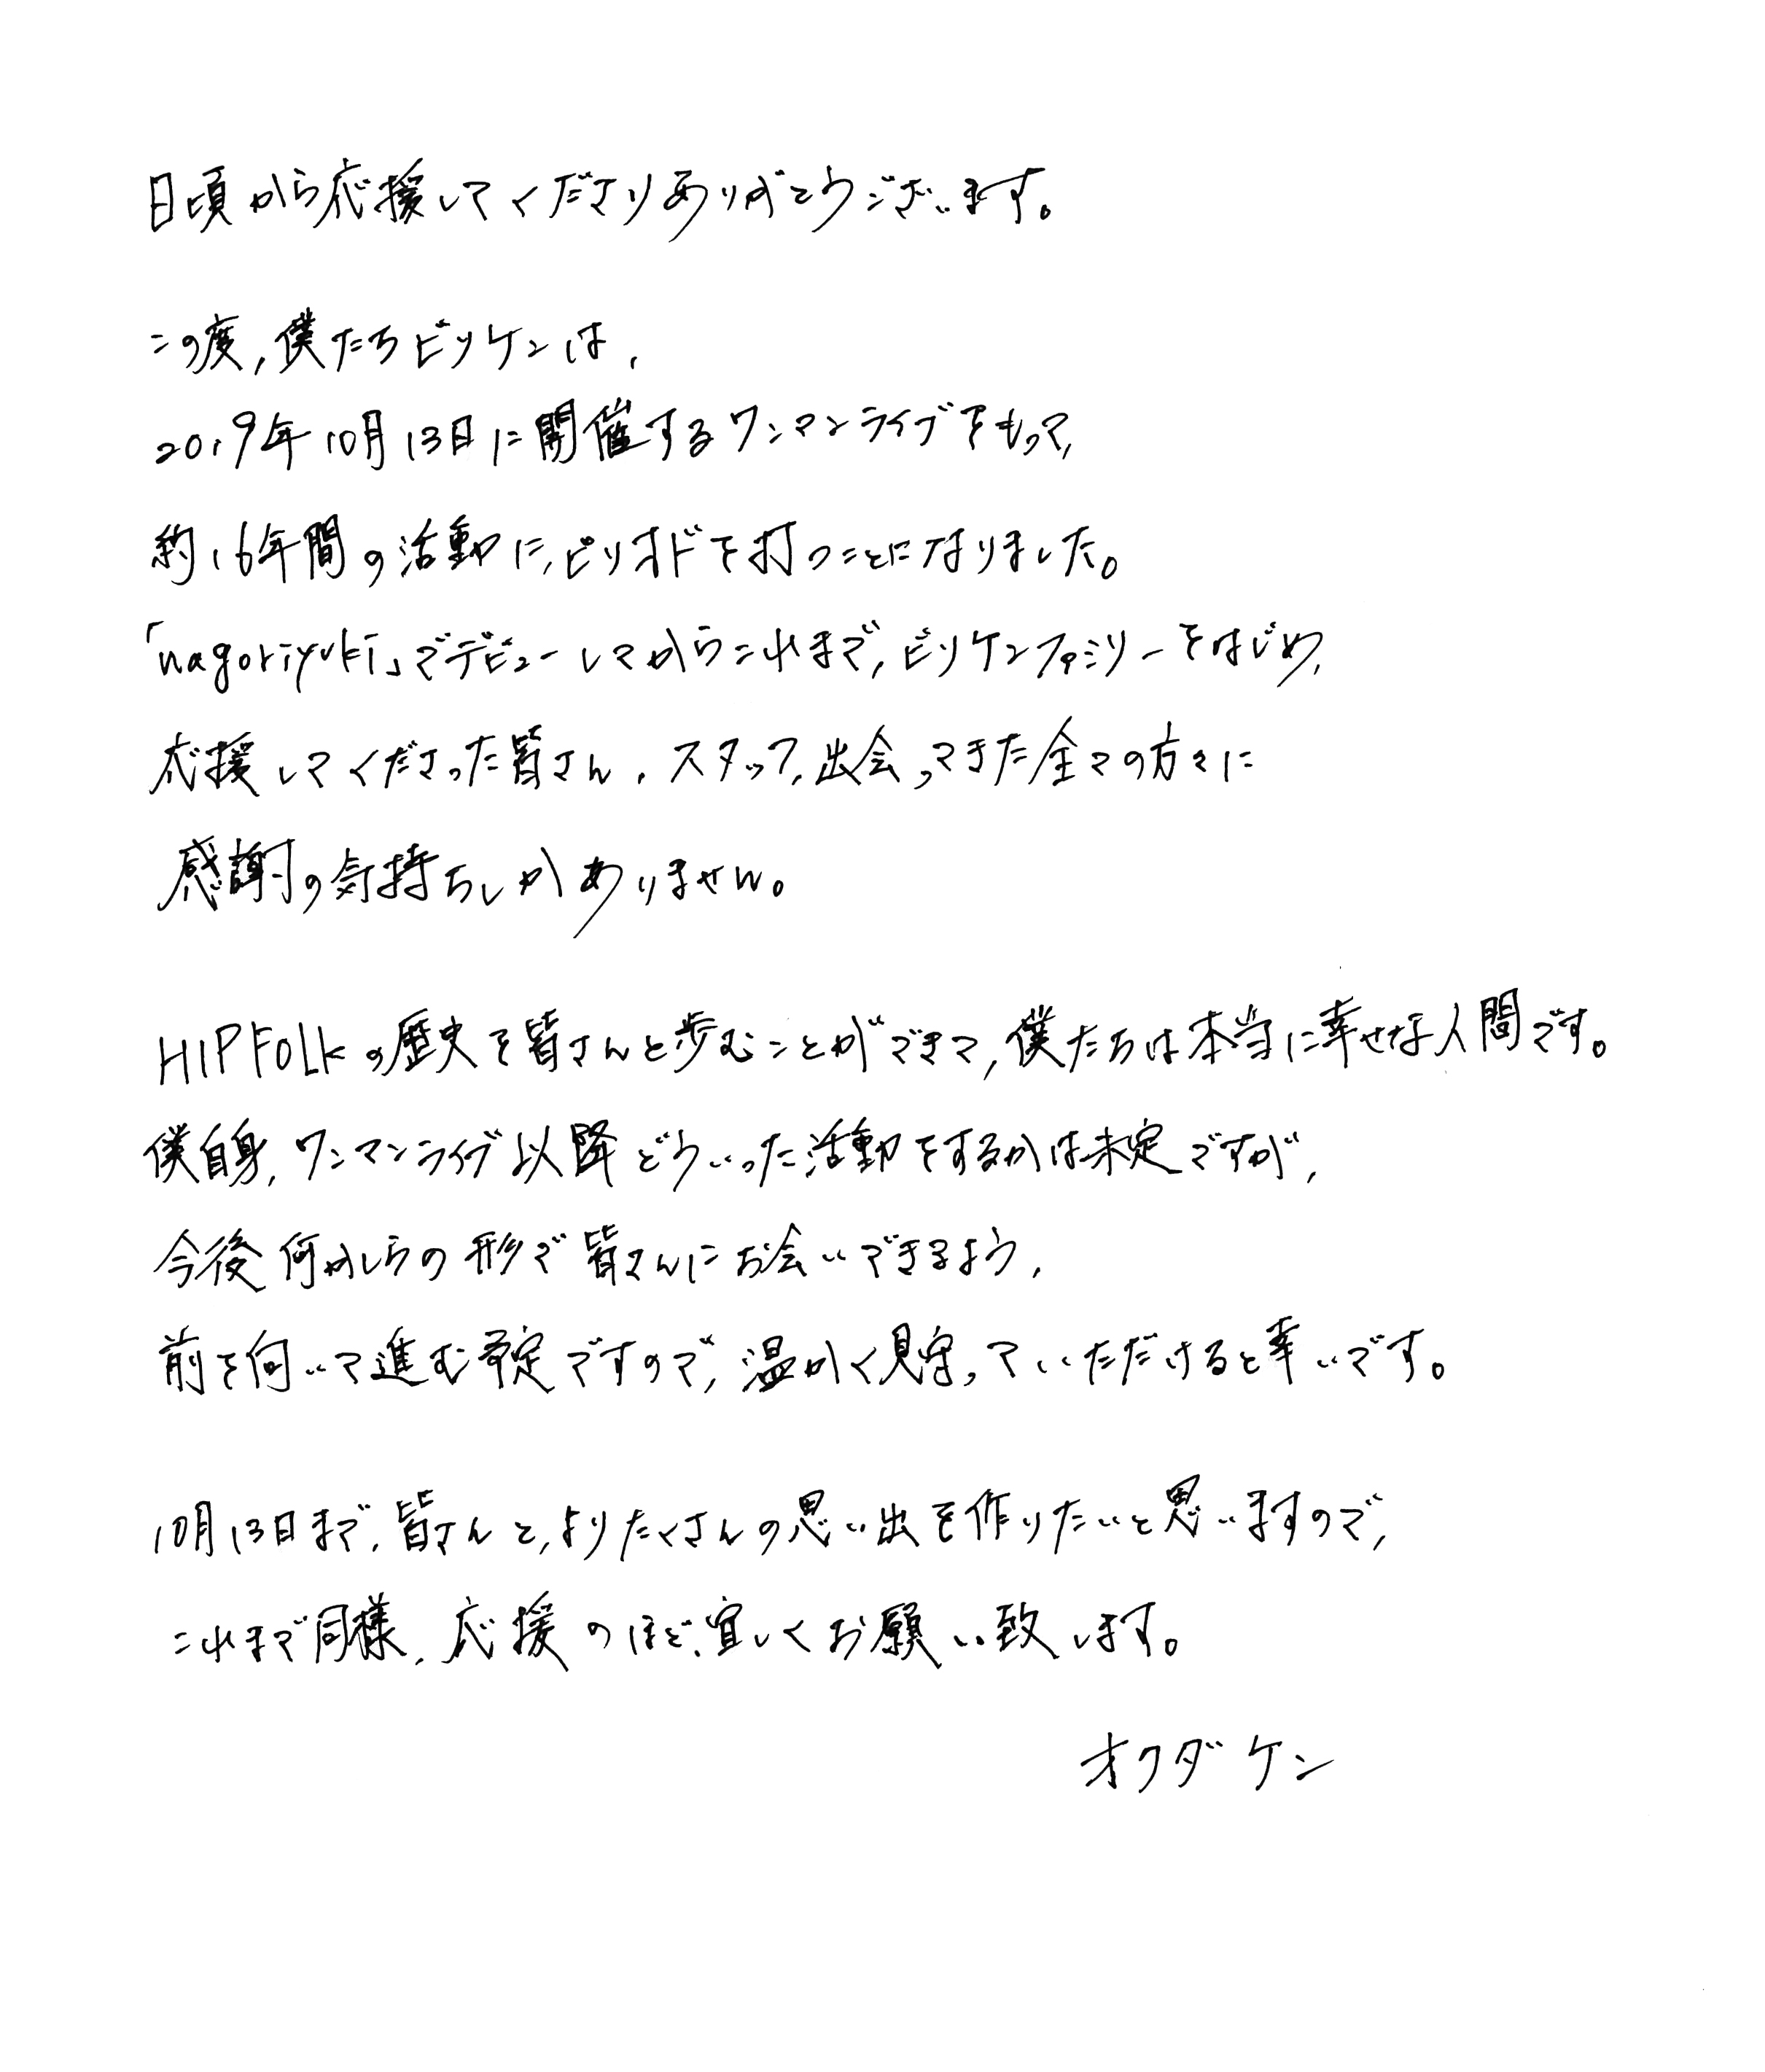 日頃から応援してくださりありがとうございます。
この度,僕たちビリケンは,
2019年10月13日に開催するワンマンライブをもって,
約16年間の活動に,ピリオドを打つことになりました。
「nagoriyuki」でデビューしてからこれまで,ビリケンファミリーをはじめ,
応援してくださった皆さん,スタッフ,出会ってきた全ての方々に
感謝の気持ちしかありません。
HIPFOLKの歴史を皆さんと歩むことができて,僕たちは本当に幸せな人間です。
僕自身,ワンマンライブ以降どういった活動をするかは未定ですが,
今後何かしらの形で皆さんにお会いできるよう,
前を向いて進む予定ですので,温かく見守っていただけると幸いです。
10月13日まで,皆さんと,よりたくさんの思い出を作りたいと思いますので,
これまで同様,応援のほど,宜しくお願い致します。
オクダケン